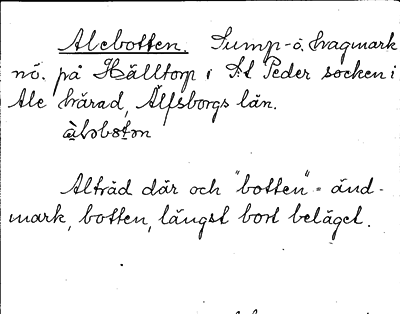 Alebotten. Sump- o. hagmark
nö. på Hälltorp i St Peder socken i
Ale härad, Älfsborgs län.
àləbotən
Alträd där och "botten" = änd-
mark, botten, längst bort beläget.